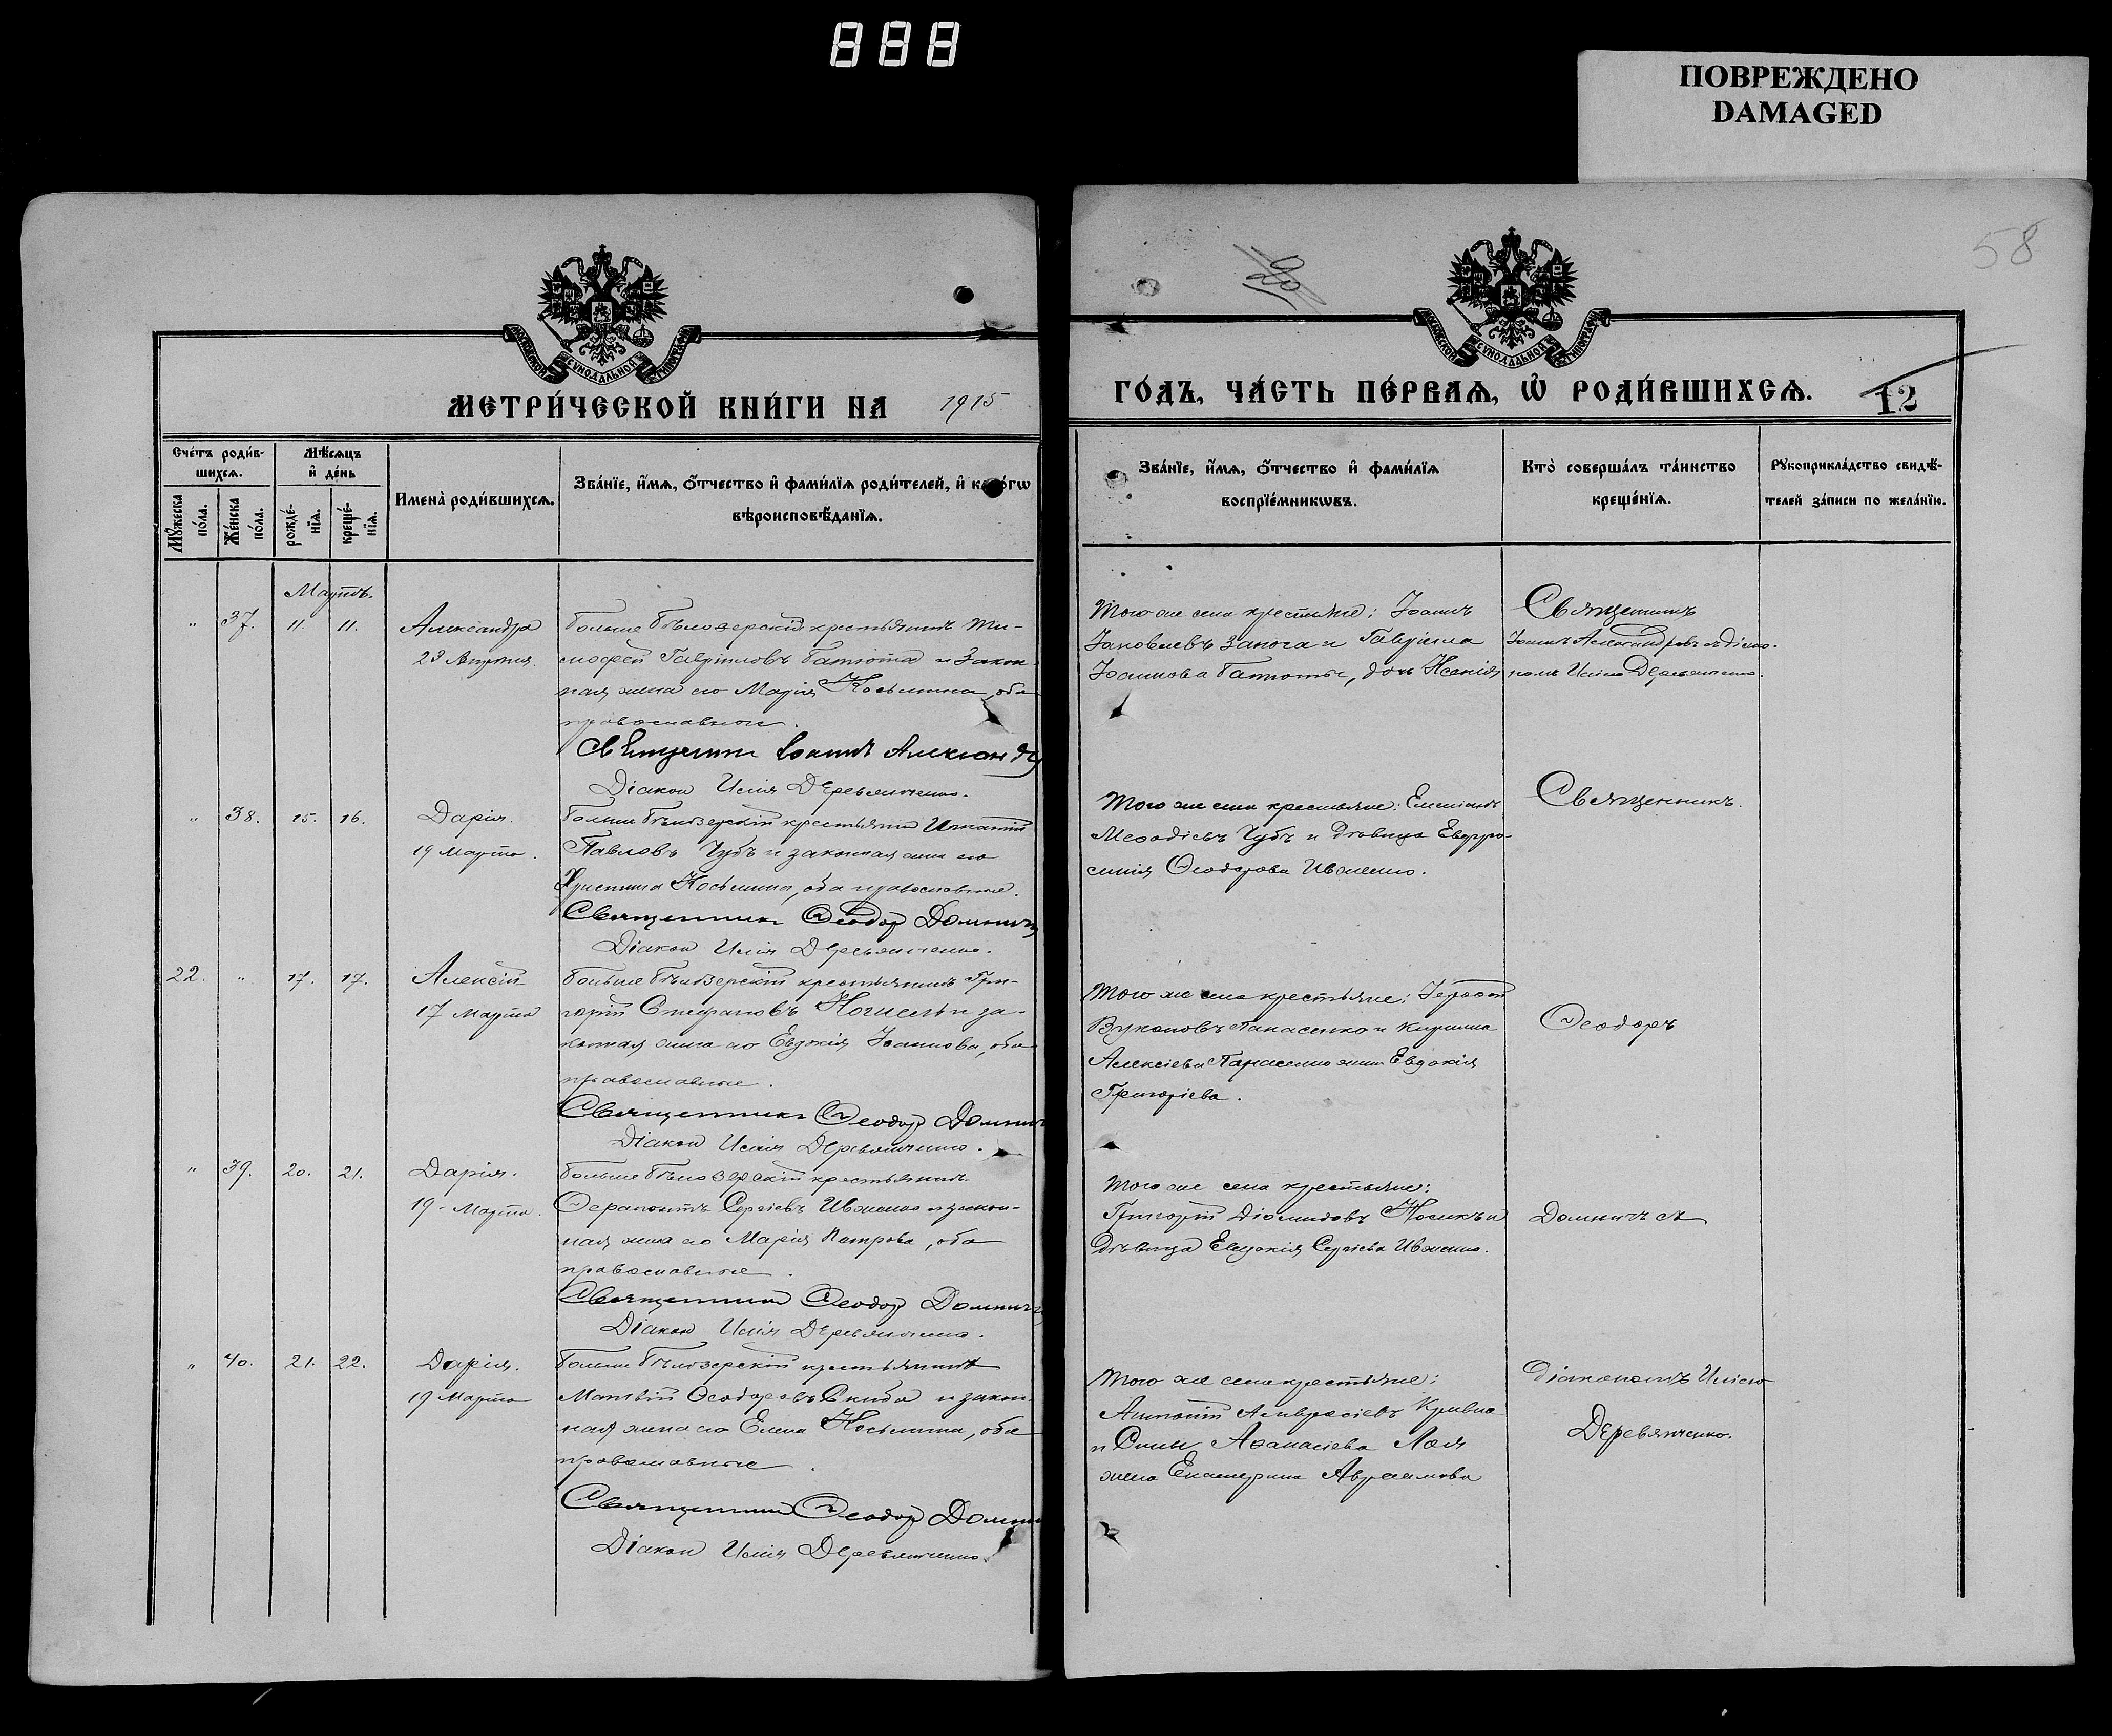 888
ПОВРЕЖДЕНО
DAMAGED
58
МОСКОВСКОЙ СУНОДАЛЬНОЙ ТИПОГРАФІИ
МОСКОВСКОЙ СУНОДАЛЬНОЙ ТИПОГРАФІИ
МЕТРИ́ЧЕСКОЙ КНИ́ГИ НА 1915
ГО́ДЪ, ЧА́СТЬ ПЕ́РВАѦ, Ѡ҆ РОДИ́ВШИХСѦ.
12
Сче́тъ роди́в-
шихсѧ.
Мꙋ́жеска по́ла.
Же́нска по́ла.
Мѣ́сѧцъ
и҆ де́нь
рожде́-
нїѧ.
креще́-
нїѧ.
Имена̀ роди́вшихсѧ.
Зва́нїе, и҆́мѧ, ѻ҆́тчество и҆ фами́лїѧ роди́телей, и҆ како́гѡ
вѣроисповѣ́данїѧ.
Зва́нїе, и҆́мѧ, ѻ҆́тчество и҆ фами́лїѧ
воспрїе́мникѡвъ.
Кто̀ соверша́лъ та́инство
креще́нїѧ.
Рꙋкоприкла́дство свидѣ́-
телей за́писи по жела́нїю.
Мартъ.
" 37. 11. 11. Александра
23 Апреля.
больше бѣлозерскій крестьянинъ Ти-
мофей Гавріиловъ Батюта и закон-
ная жена его Марія Косьмина, оба
православные.
Священникъ Іоаннъ Александр
Діакон Илія Деревянченко.
Того же села крестьяне: Іоаннъ
Яковлевъ Запога и Гавріила
Іоаннова Батюты, дочь Ксенія
Священникъ
Іоаннъ Александровъ съ діако-
номъ Иліею Деревянченко.
" 38. 15. 16. Дарія.
19 Марта.
больше бѣлозерскій крестьянинъ Игнатій
Павловъ Чубъ и законная жена его
Христина Косьмина, оба православные.
Священникъ Ѳеодор Домнич
Діакон Илія Деревянченко.
Того же села крестьяне: Емеліанъ
Меѳодіевъ Чубъ и дѣвица Евфро-
синія Ѳеодорова Ивженко.
Священникъ.
22. " 17. 17. Алексій
17 Марта
больше бѣлозерскій крестьянинъ Гри-
горій Стефановъ и за-
конная жена его Евдокія Іоаннова, оба
православные.
Священникъ Ѳеодор Домнич
Діакон Илія Деревянченко.
Того же села крестьяне:
Панасенко и Кирилла
Алексіева Панасенко жена Евдокія
Григоріева.
Ѳеодоръ
" 39. 20. 21. Дарія.
19 Марта.
больше бѣлозерскій крестьянинъ
Ѳерапонтъ Сергіевъ Ивженко и закон-
ная жена его Марія Петрова, оба
православные.
Священникъ Ѳеодор Домнич
Діакон Илія Деревянченко.
Того же села крестьяне:
Григорій Діомидовъ Носикъ и
дѣвица Евдокія Сергіева Ивженко.
Домничъ съ
" 40. 21. 22. Дарія.
19 Марта
больше бѣлозерскій крестьянинъ
Матвій Ѳеодоровъ Скиба и закон-
ная жена его Елена Косьмина, оба
православные.
Священникъ Ѳеодор Домнич
Діакон Илія Деревянченко.
Того же села крестьяне:
Антоній Амвросіевъ Кривко
и Силы Аѳанасіева Лая
жена Екатерина Авраамова
діакономъ Иліею
Деревянченко.